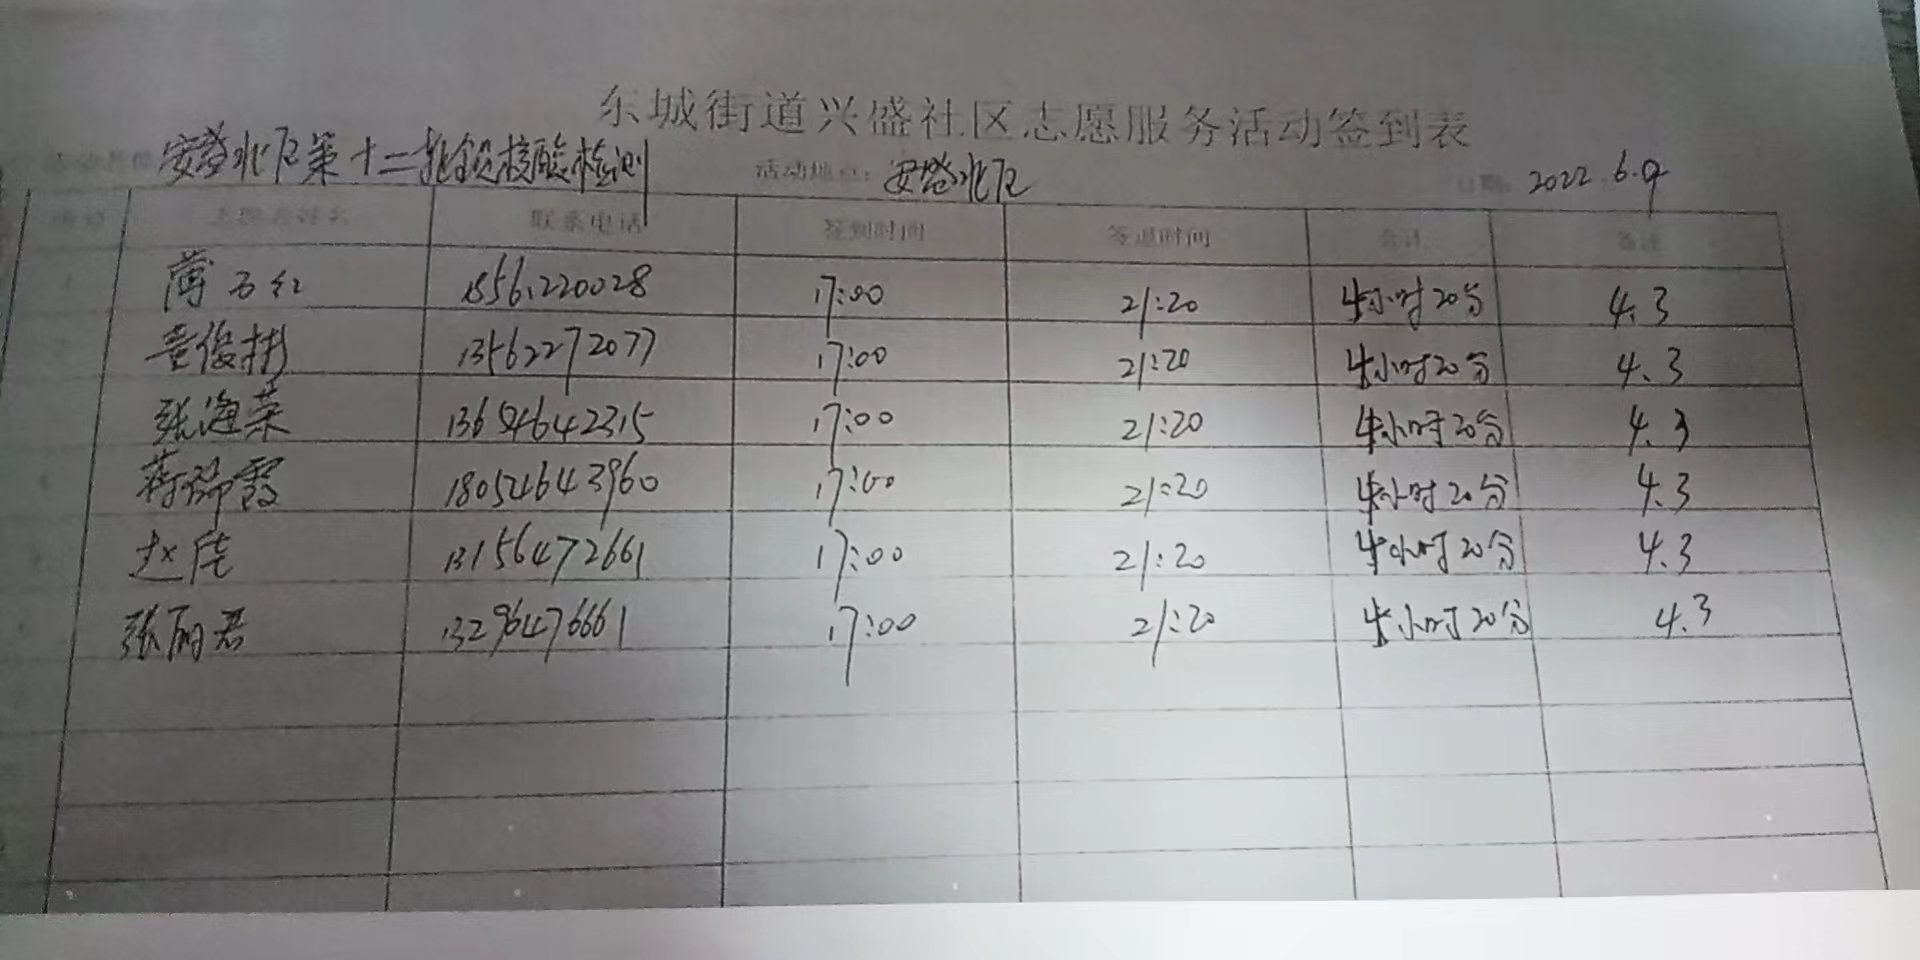 东城街道兴盛社区志愿服务活动签到表
安登北区第十二批段核酸检测 活动地点: 安登北区 日期: 2022.6.9
联系电话 签到时间 签退时间 合计 备注
薄玉红 15561220028 17:00 21:20 4小时20分 4.3
13562272077 17:00 21:20 4小时20分 4.3
张海荣 13654642315 17:00 21:20 4小时20分 4.3
蒋瑞霞 18054643960 17:00 21:20 4小时20分 4.3
赵佳 13156472661 17:00 21:20 4小时20分 4.3
张丽君 13296476661 17:00 21:20 4小时20分 4.3